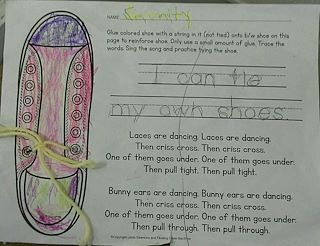 NAME Serenity
Glue colored shoe with a string in it (not tied) onto b/w shoe on
this page to reinforce shoe. Only use a small amount of glue. Trace the
words. Sing the song and practice tying the shoe.
I can tie
my own shoes
Laces are dancing. Laces are dancing.
Then criss cross. Then criss cross.
One of them goes under. One of them goes under.
Then pull tight. Then pull tight.
Bunny ears are dancing. Bunny ears are dancing.
Then criss cross. Then criss cross.
One of them goes under. One of them goes under.
Then pull through. Then pull through.